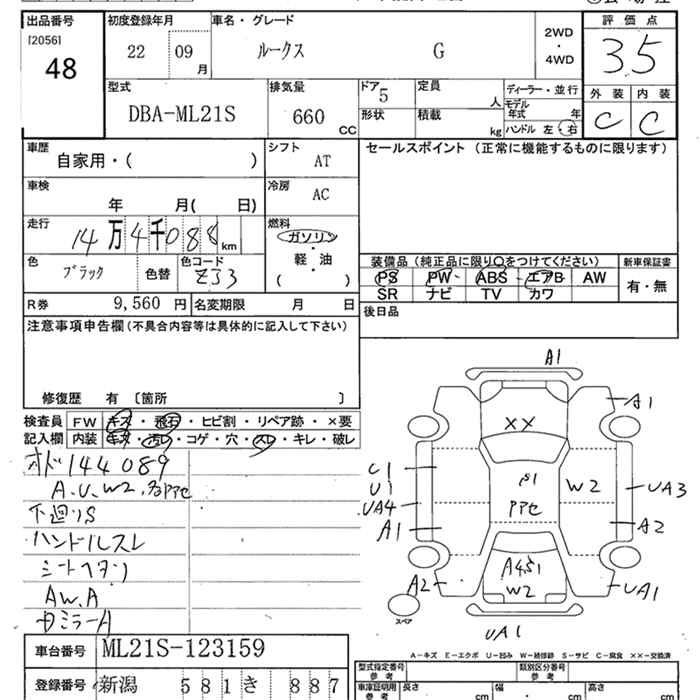 出品番号
[2056]
48
初度登録年月
22 09 月
車名・グレード
ルークス G
2WD
・
4WD
評価点
3.5
外装 内装
C C
型式
DBA-ML21S
排気量
660 CC
ドア 5
形状
定員
人
積載
kg
ディーラー・並行
モデル
年式 年
ハンドル 左・右
車歴
自家用・( )
シフト
AT
車検
年 月( 日)
冷房
AC
走行
14万4千088 km
燃料
ガソリン
軽・油
( )
色
ブラック
色替
色コード
ZJ3
R券 9,560 円
名変期限 月 日
セールスポイント (正常に機能するものに限ります)
装備品(純正品に限り○をつけてください)
PS PW ABS エアB AW
SR ナビ TV カワ
新車保証書
有・無
後日品
注意事項申告欄(不具合内容等は具体的に記入して下さい)
修復歴 有 〔箇所 〕
検査員
記入欄
FW キズ・飛石・ヒビ割・リペア跡・×要
内装 キズ・汚レ・コゲ・穴・スレ・キレ・破レ
オド144089
A.U.W2.
下廻リS
ハンドルスレ
シートヘタリ
AW.A
ミラーA
A1
A1
XX
C1
U1
UA4
A1
S1
W2
UA3
A2
A2
W2
UA1
UA1
スペア
A-キズ E-エクボ U-凹み W-補修跡 S-サビ C-腐食 ××-交換済
車台番号 ML21S-123159
登録番号 新潟 581 き 887
型式指定番号
参考
類別区分番号
参考
車庫証明用
参考
長さ cm
幅 cm
高さ cm